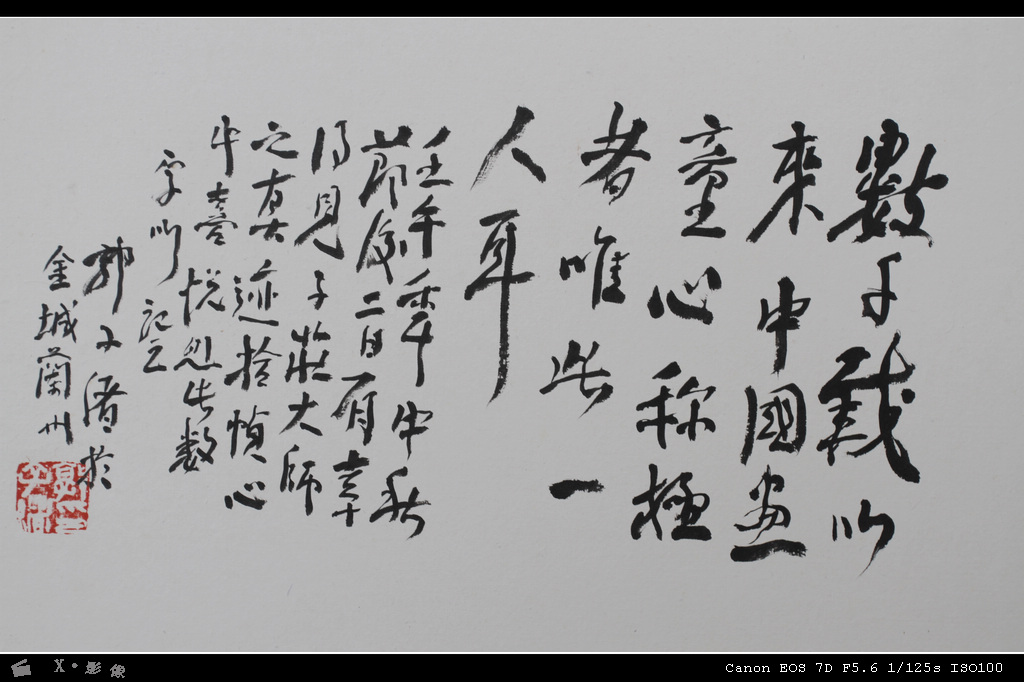 數千載以
來中國畫
童心称極
者唯此一
人耳
壬午秊中秋
節後二日有幸
得見子莊大師
之真迹 心
喜悦 数
字以記之
郭 於
金城蘭州
X·影像
Canon EOS 7D F5.6 1/125s ISO100